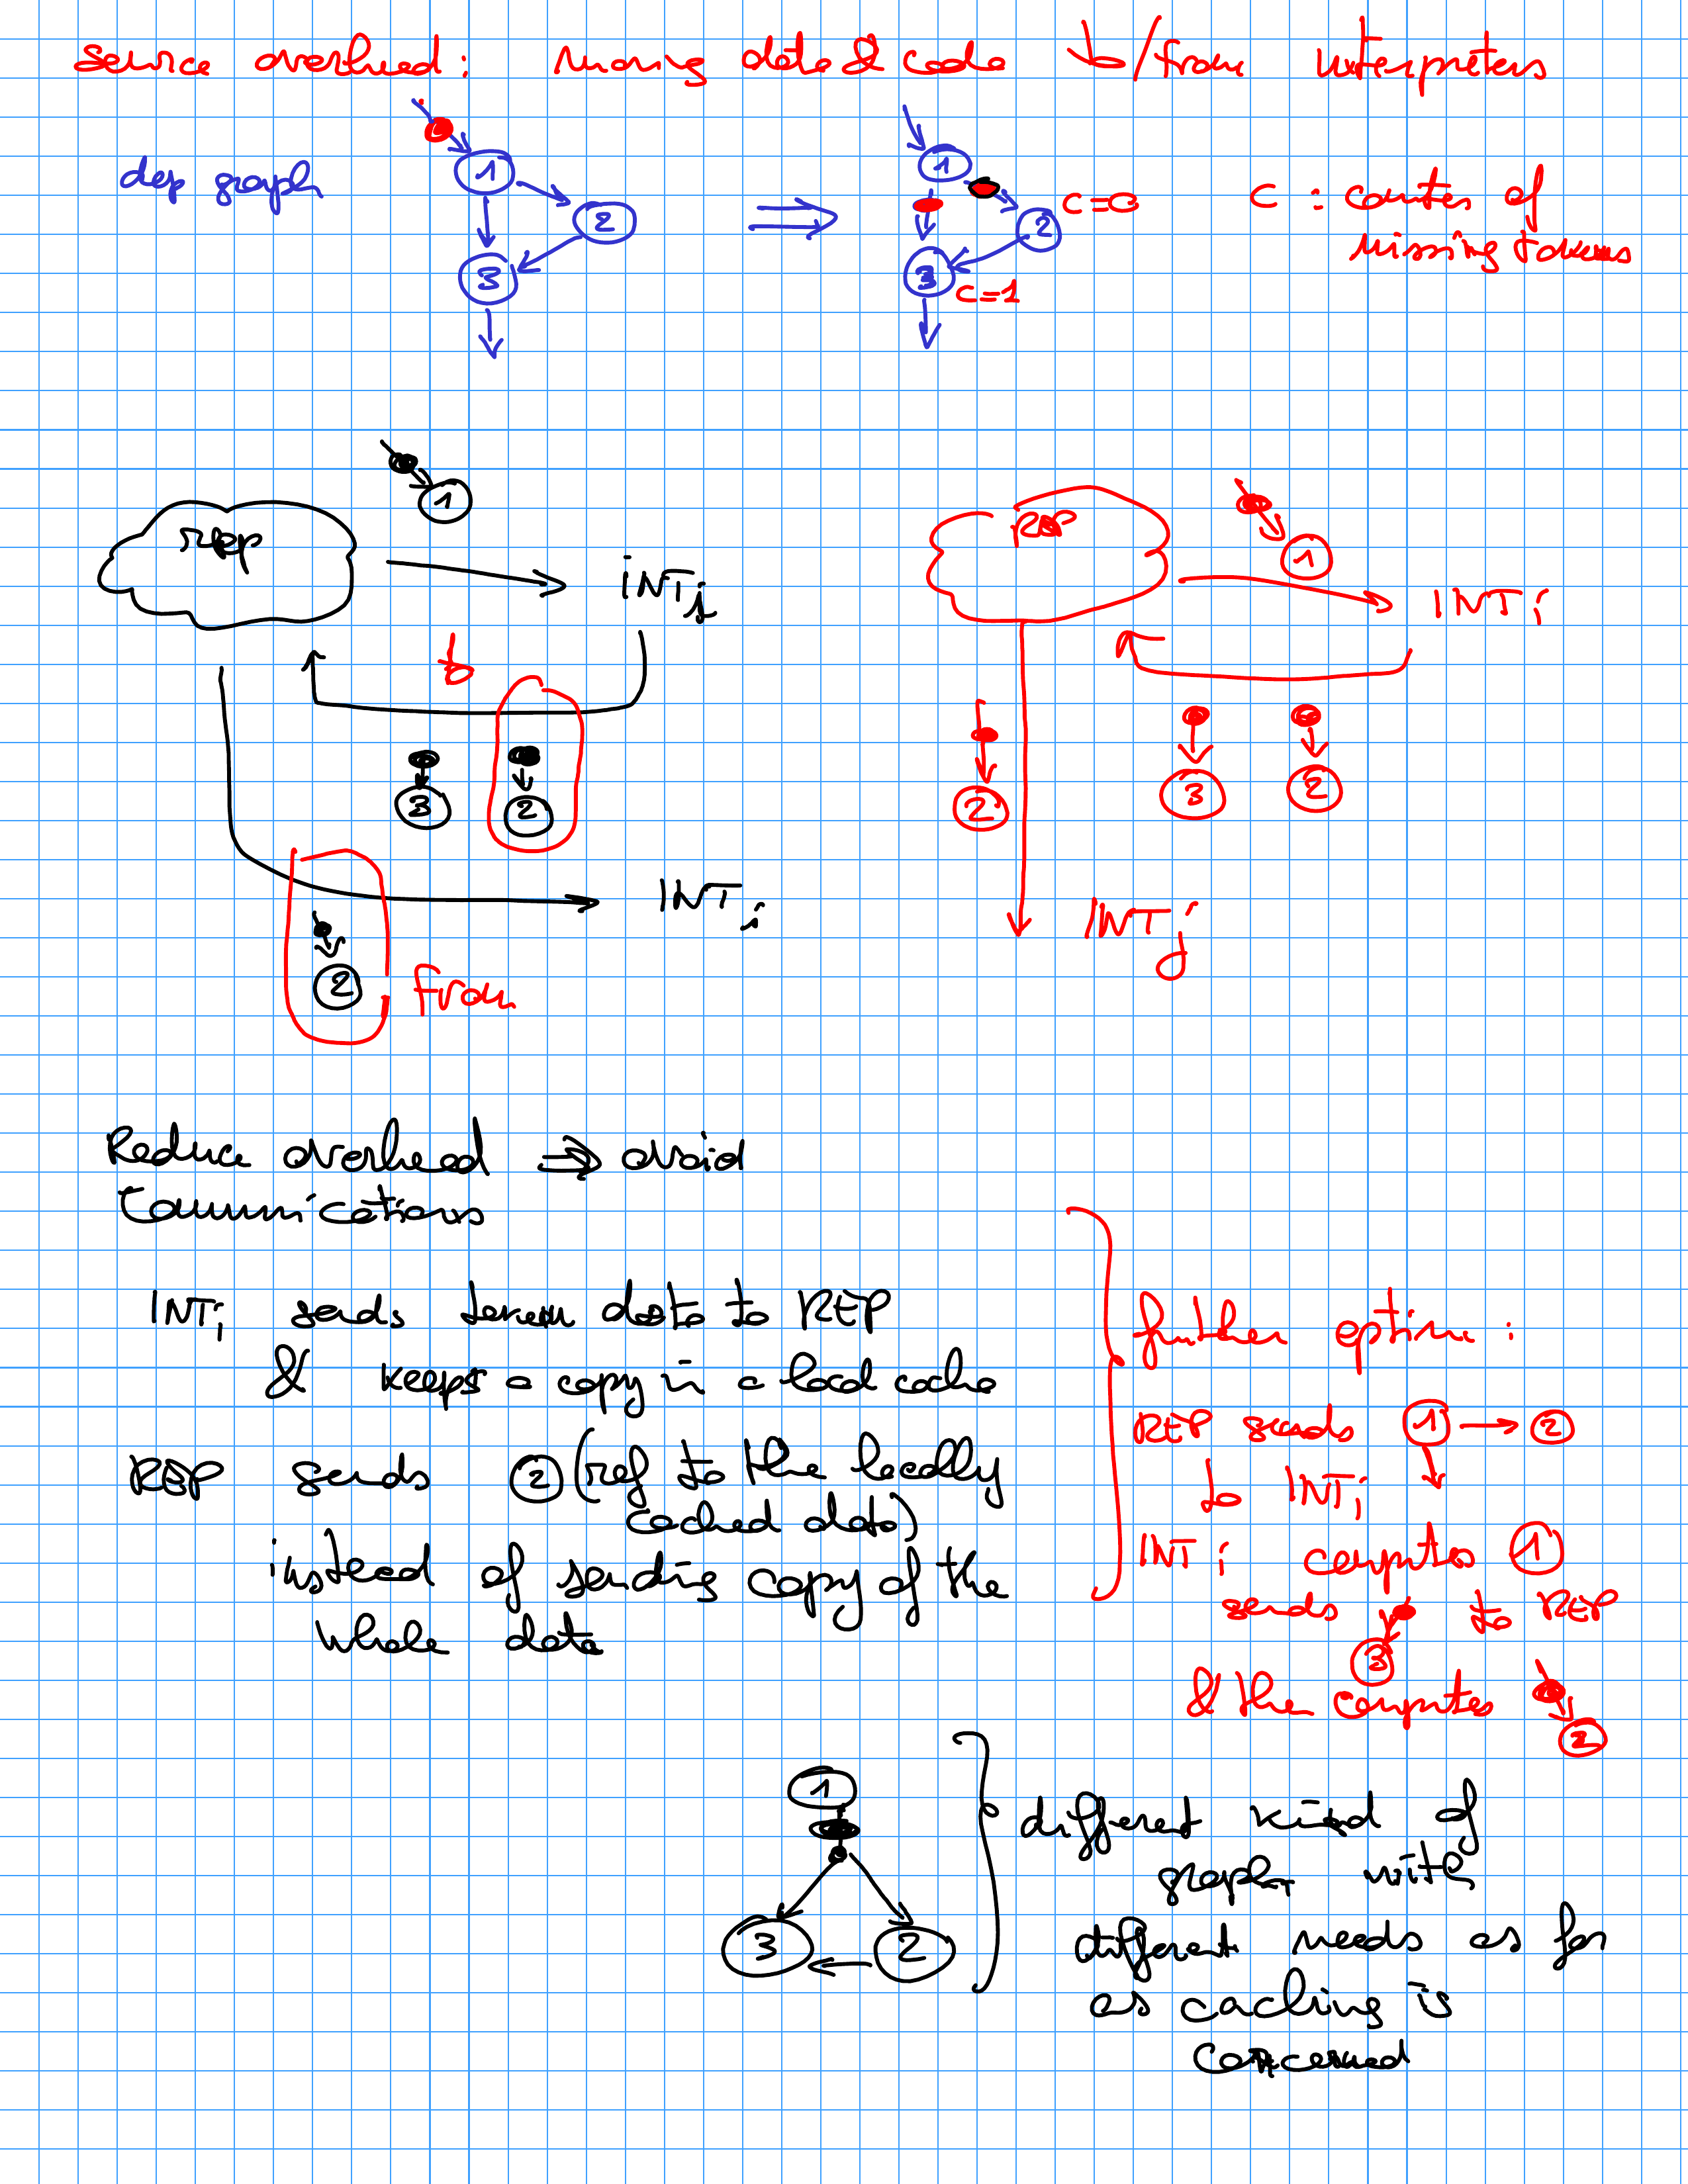 service overhead: moving data & code to/from interpreters
dep graph
1
2
3
1
2
3
c=0
c=1
c : counter of
missing tokens
1
REP
INTj
to
3
2
2
from
INTi
REP
1
INTi
3
2
2
INTj
Reduce overhead ⇒ avoid
communications
INTi sends token data to REP
& keeps a copy in a local cache
REP sends 2 (ref to the locally
cached data)
instead of sending copy of the
whole data
further optim:
REP sends 1 → 2
to INTi
INTi computes 1
sends to REP
3
& the computes
2
1
3
2
different kind of
graph with
different needs as far
as caching is
concerned